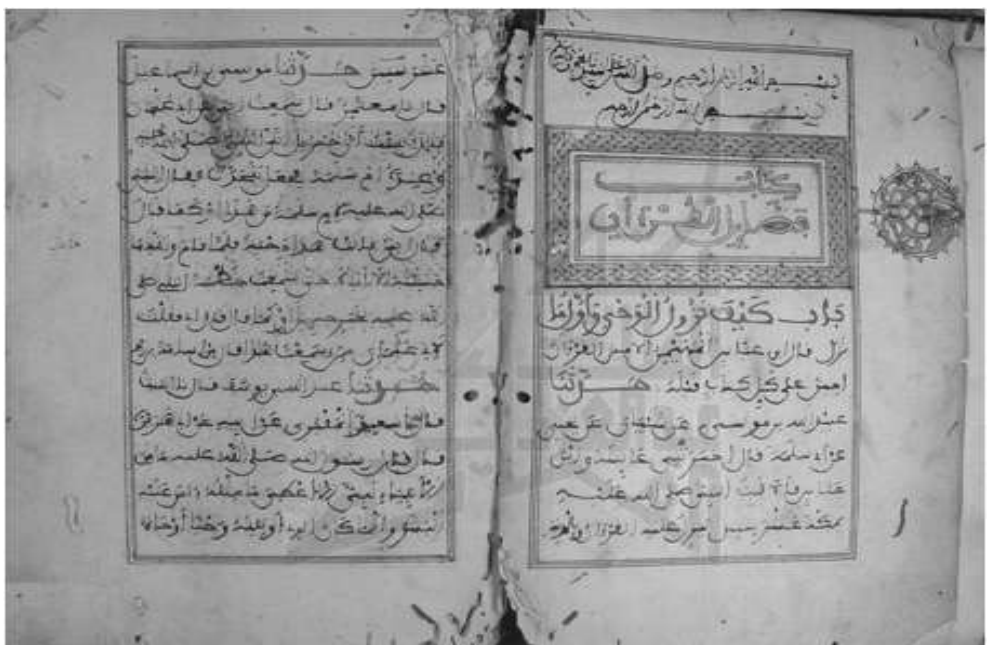 بسم الله الرحمن الرحيم وصلى الله على سيدنا محمد
بسم الله الرحمن الرحيم
كتاب
فضايل القرءان
باب كيف نزول الوحي وأول ما
نزل قال ابن عباس المهيمن الامين القرءان
امين على كل كتاب قبله حدثنا
عبيد الله بن موسى عن شيبان عن يحيى
عن ابي سلمة قال اخبرتني عايشة وابن
عباس قالا لبث النبي صلى الله عليه
بمكة عشر سنين ينزل عليه القرءان وبالمدينة
عشر سنين حدثنا موسى بن اسماعيل
قال نا معتمر قال سمعت ابي عن ابي عثمان
قال أن جبريل اتى النبي صلى الله عليه
وعنده ام سلمة فجعل يتحدث فقال النبي
صلى الله عليه لام سلمة من هذا او كما قال
قالت هذا دحية فلما قام والله ما
حسبته الا اياه حتى سمعت خطبة النبي صلى
الله عليه بخبر جبريل او كما قال فقلت
لابي عثمن ممن سمعت هذا قال من اسامة بن زيد
حدثنا عبد الله بن يوسف قال نا الليث
قال نا سعيد المقبري عن ابيه عن ابي هريرة
قال قال رسول الله صلى الله عليه ما من
الانبياء نبي الا اعطي ما مثله ءامن عليه
البشر وانما كان الذي أوتيته وحيا أوحاه